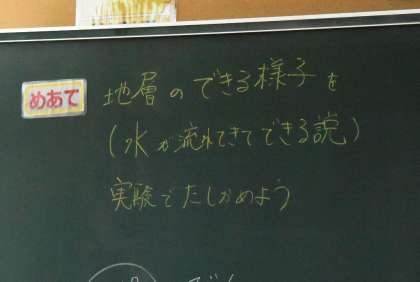 めあて
地層のできる様子を
(水が流れてきてできる説)
実験でたしかめよう